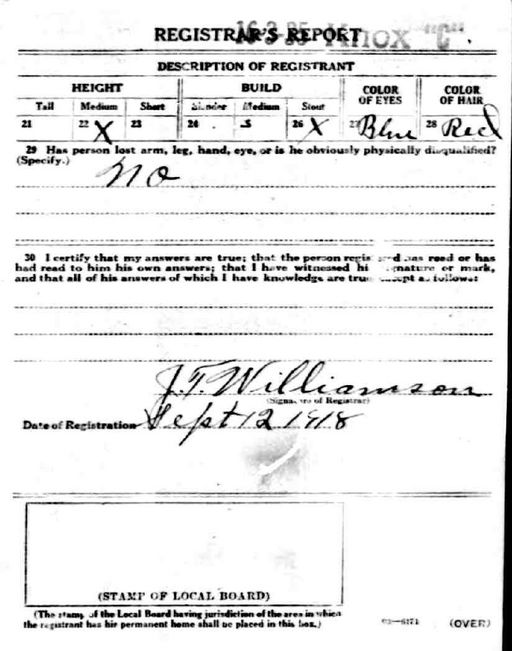 REGISTRAR'S REPORT 16-3-25 Knox "C"
DESCRIPTION OF REGISTRANT
HEIGHT BUILD COLOR OF EYES COLOR OF HAIR
Tall Medium Short Slender Medium Stout
21 22 X 23 24 26 X 27 Blue 28 Red
29 Has person lost arm, leg, hand, eye, or is he obviously physically disqualified?
(Specify.) No
30 I certify that my answers are true; that the person registered has read or has
had read to him his own answers; that I have witnessed his signature or mark,
and that all of his answers of which I have knowledge are true, except as follows:
J. T. Williamson
(Signature of Registrar)
Date of Registration Sept 12 1918
(STAMP OF LOCAL BOARD)
(The stamp of the Local Board having jurisdiction of the area in which
the registrant has his permanent home shall be placed in this box.)
(OVER)